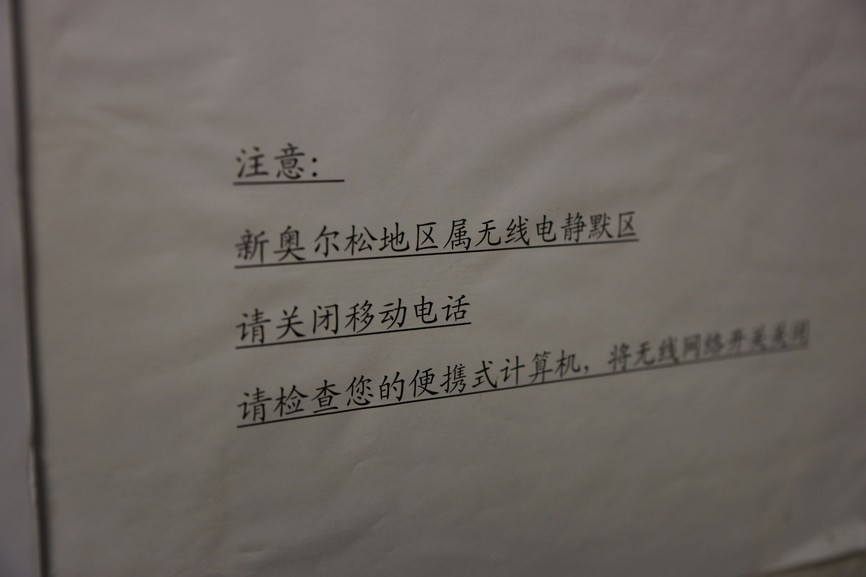 注意：
新奥尔松地区属无线电静默区
请关闭移动电话
请检查您的便携式计算机，将无线网络开关关闭